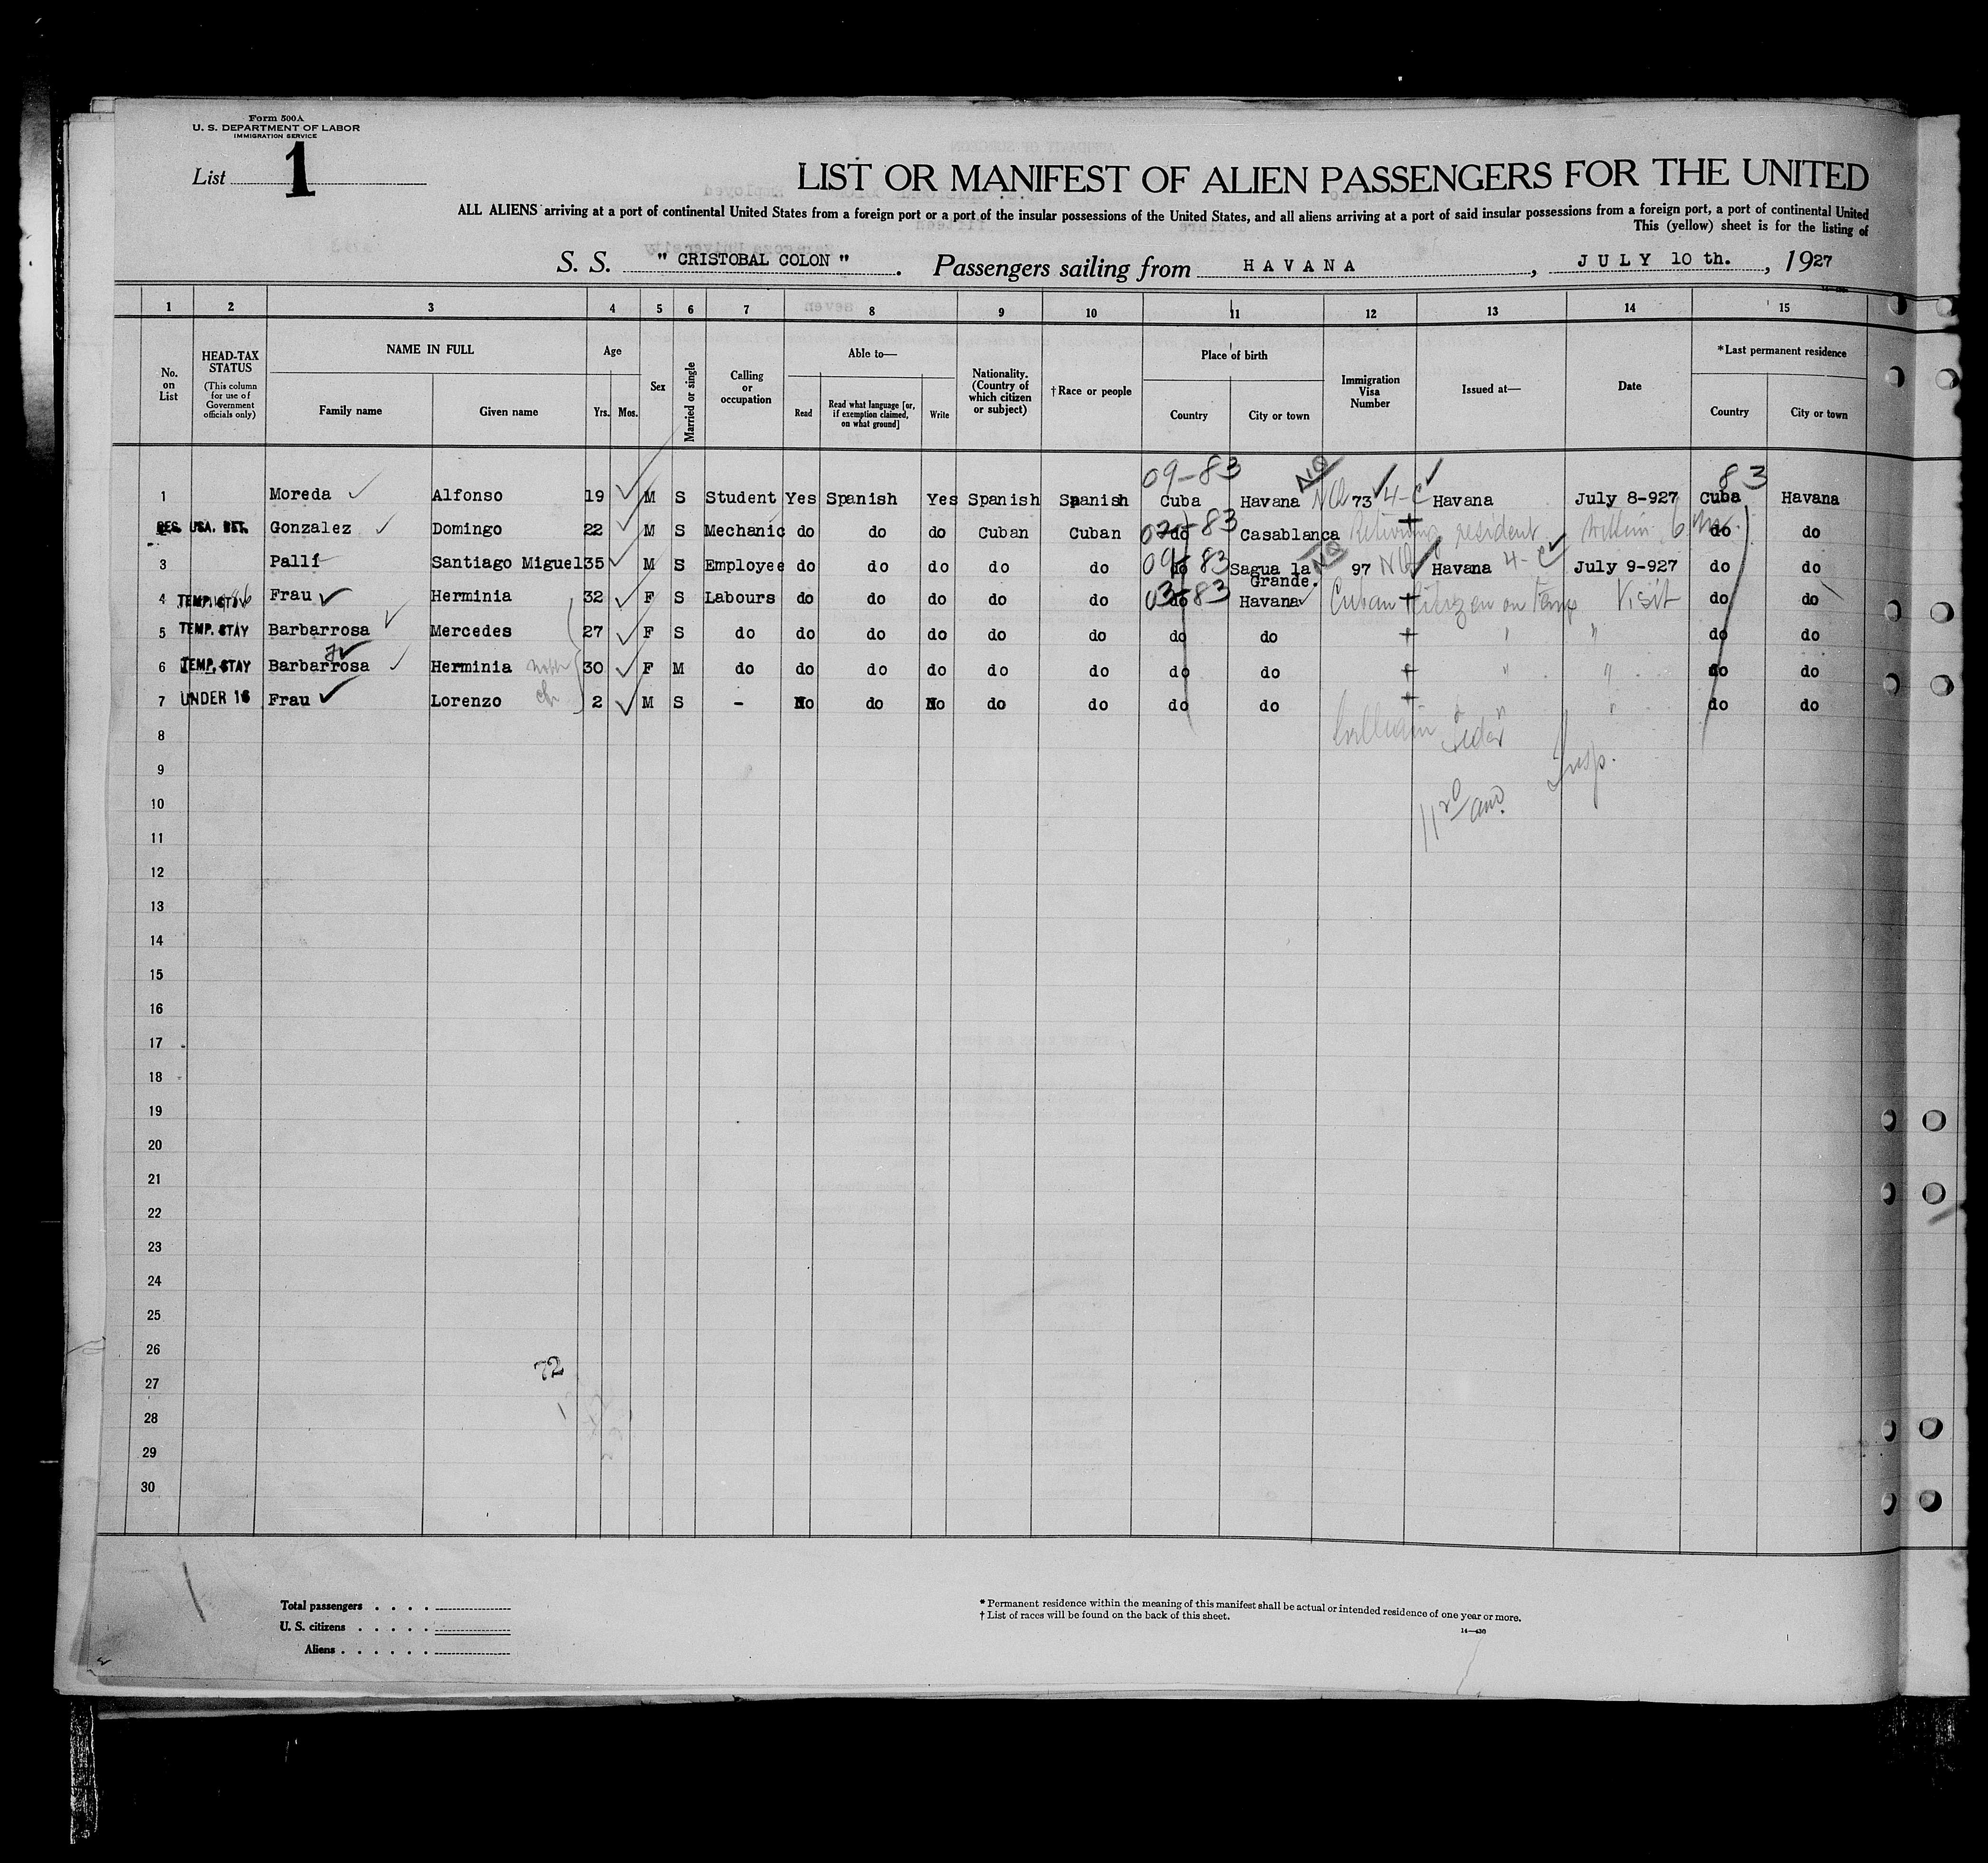 Form 500A
U. S. DEPARTMENT OF LABOR
IMMIGRATION SERVICE
List 1
LIST OR MANIFEST OF ALIEN PASSENGERS FOR THE UNITED
ALL ALIENS arriving at a port of continental United States from a foreign port or a port of the insular possessions of the United States, and all aliens arriving at a port of said insular possessions from a foreign port, a port of continental United
This (yellow) sheet is for the listing of
S. S. " CRISTOBAL COLON ". Passengers sailing from HAVANA, JULY 10 th., 1927
1 2 3 4 5 6 7 8 9 10 11 12 13 14 15
No. on List
HEAD-TAX STATUS
(This column for use of Government officials only)
NAME IN FULL
Family name
Given name
Age
Yrs. Mos.
Sex
Married or single
Calling or occupation
Able to—
Read
Read what language [or, if exemption claimed, on what ground]
Write
Nationality. (Country of which citizen or subject)
† Race or people
Place of birth
Country
City or town
Immigration Visa Number
Issued at—
Date
*Last permanent residence
Country
City or town
09-83 NQ 83
1 Moreda Alfonso 19 M S Student Yes Spanish Yes Spanish Spanish Cuba Havana NQ 73 4-C Havana July 8-927 Cuba Havana
USA. Gonzalez Domingo 22 M S Mechanic do do do Cuban Cuban do 83 Casablanca resident within 6 do do
3 Pallí Santiago Miguel 35 M S Employee do do do do do do 09-83 Sagua la Grande. NQ 97 NQ Havana 4-C July 9-927 do do
4 TEMP. STAY Frau Herminia 32 F S Labours do do do do do do 03-83 Havana Cuban Citizen on Temp Visit do do
5 TEMP. STAY Barbarrosa Mercedes 27 F S do do do do do do do do " " do do
6 TEMP. STAY Barbarrosa Herminia 30 F M do do do do do do do do " " do do
7 UNDER 16 Frau Lorenzo ch 2 M S - No do No do do do do " " do do
8
Insp.
9
10
11
12
13
14
15
16
17
18
19
20
21
22
23
24
25
26
72
27
28
29
30
Total passengers
U. S. citizens
Aliens
* Permanent residence within the meaning of this manifest shall be actual or intended residence of one year or more.
† List of races will be found on the back of this sheet.